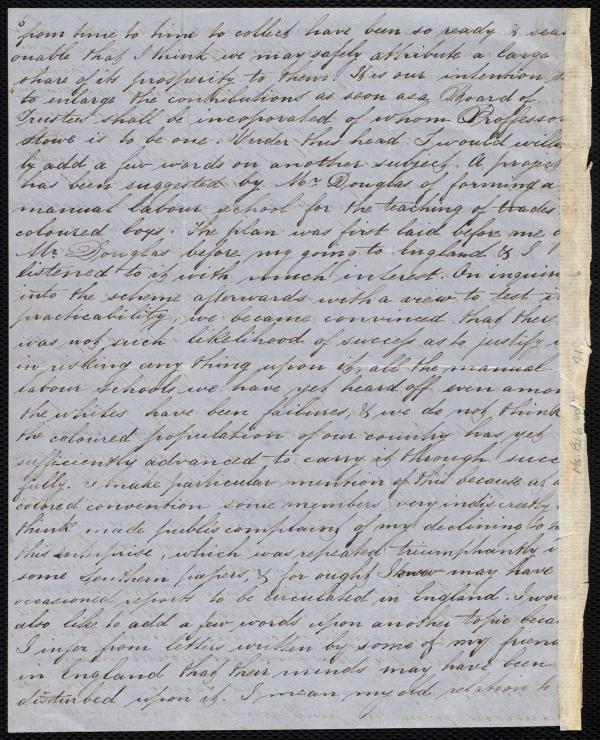 from time to time to collect have been so ready & seas
onable that I think we may safely attribute a large
share of its prosperity to them. It is our intention
to enlarge the contributions as soon as a Board of
Trustees shall be incoporated of whom Professor
Stowe is to be one. Under this head I would willin
by add a few words on another subject. A propos
has been suggested by Mr Douglas of forming a
manual labour school for the teaching of trades
coloured boys. The plan was first laid before me
Mr Douglas before my going to England & I
listened to it with much interest. On inquiri
into the scheme afterwards with a view to test it
practicability, we became convinced that there
was not such likelihood of success as to justify
in risking any thing upon it, all the manual
labour schools we have yet heard off even amon
the whites have been failures, & we do not think
the coloured population of our country has yet
sufficiently advanced to carry it through succ
fully. I make particular mention of this because as a
colored convention some members very indiscreetly
think made public complaint of my declining to
this enterprise, which was repeated triumphantly i
some Southern papers, & for ought I know may have
occasioned reports to be circulated in England. I wou
also like to add a few words upon another topic becau
I infer from letters written by some of my friend
in England that their minds may have been
disturbed upon it. I mean my old relation